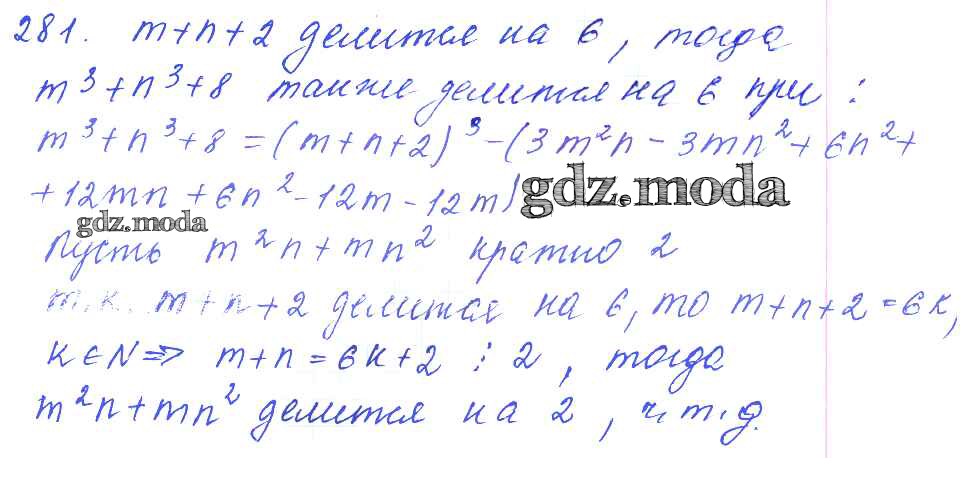 281. m+n+2 делится на 6, тогда
m³+n³+8 также делится на 6 при:
m³+n³+8=(m+n+2)³-(3m²n-3mn²+6n²+
+12mn+6n²-12m-12m) gdz.moda
gdz.moda
Пусть m²n+mn² кратно 2
т.к. m+n+2 делится на 6, то m+n+2=6k,
k∈N=> m+n=6k+2 ⋮ 2, тогда
m²n+mn² делится на 2, ч.т.д.